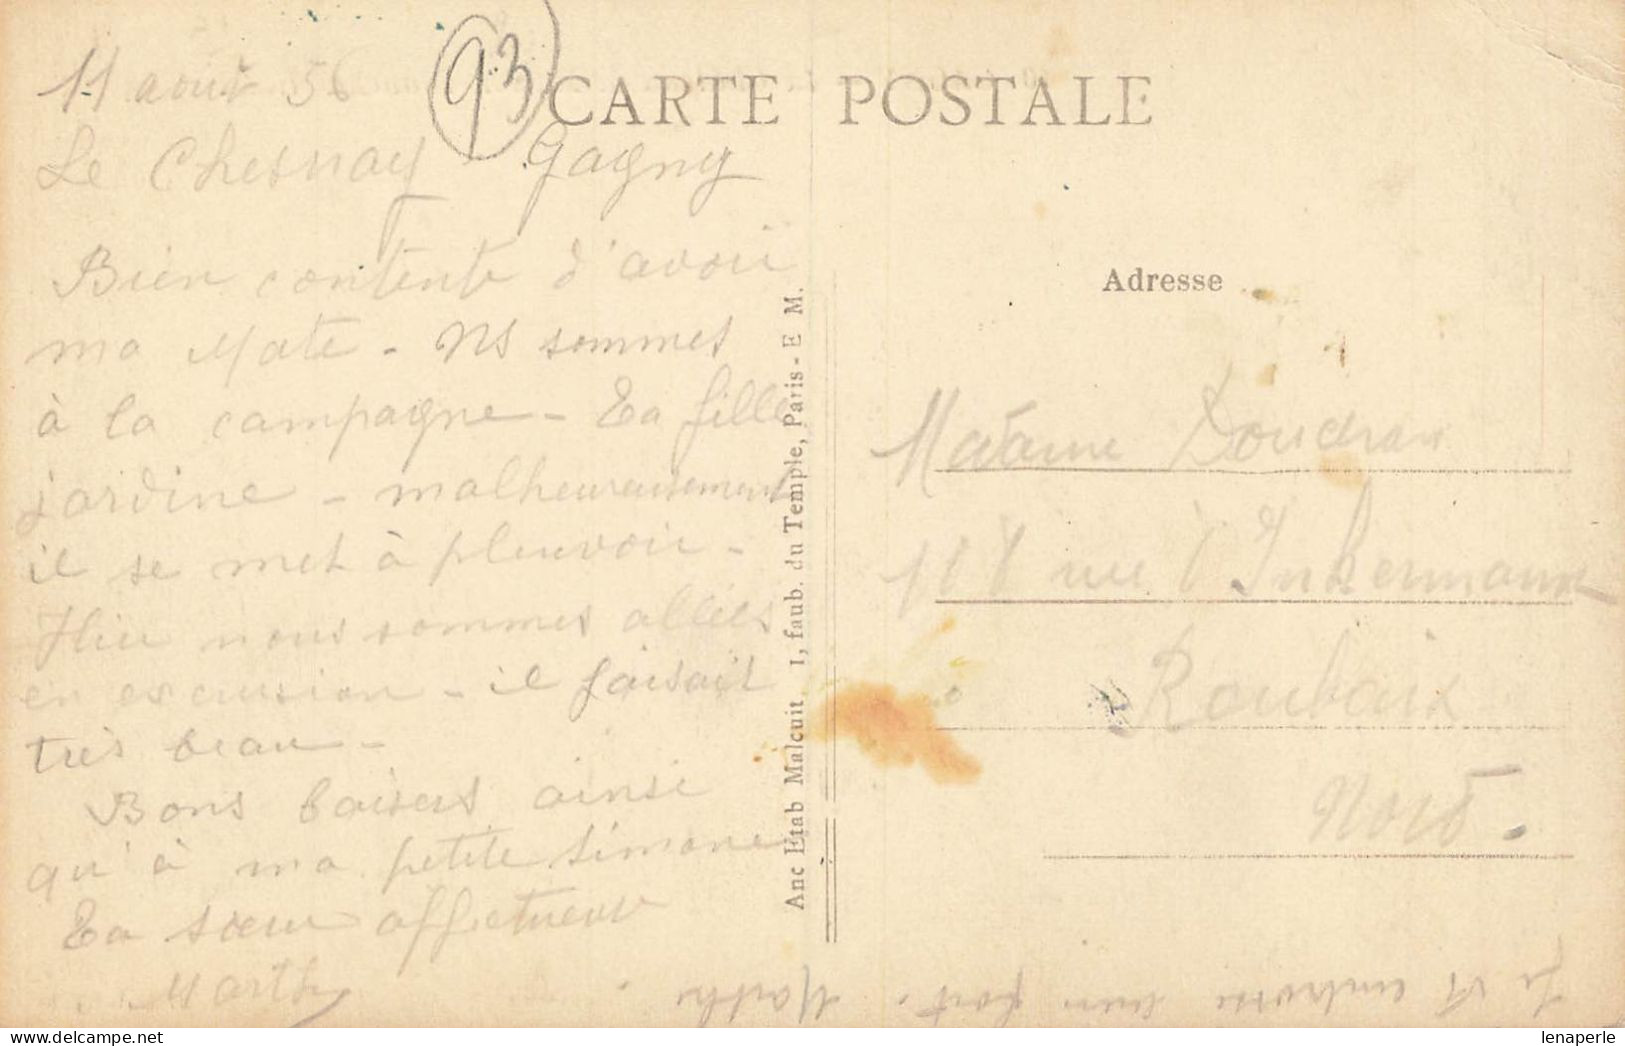 11 août 56
93
CARTE POSTALE
Le Chesnay Gagny
Bien contente d'avoir
ma Mate - Ns sommes
à la campagne - Ta fille
jardine - malheureusement
il se met à pleuvoir -
Hier nous sommes allées
en excursion - il faisait
très beau -
Bons baisers ainsi
qu'à ma petite Simone
Ta sœur affectueuse
Marthe
Anc Etab Malcuit 1, faub. du Temple, Paris - E M.
Adresse
Madame
rue d'Inkermann
Roubaix
Nord.
Je t'embrasse bien fort. Marthe
lenaperle